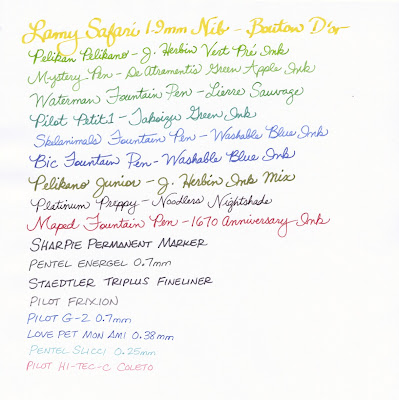 Lamy Safari 1.9mm Nib - Bouton D'or
Pelikan Pelikano - J. Herbin Vert Pré Ink
Mystery Pen - De Atramentis Green Apple Ink
Waterman Fountain Pen - Lierre Sauvage
Pilot Petit1 - Takeizu Green Ink
Skelanimals Fountain Pen - Washable Blue Ink
Bic Fountain Pen - Washable Blue Ink
Pelikano Junior - J. Herbin Ink Mix
Platinum Preppy - Noodlers Nightshade
Maped Fountain Pen - 1670 Anniversary Ink
SHARPIE PERMANENT MARKER
PENTEL ENERGEL 0.7mm
STAEDTLER TRIPLUS FINELINER
PILOT FRIXION
PILOT G-2 0.7mm
LOVE PET MON AMI 0.38mm
PENTEL SLICCI 0.25mm
PILOT HI-TEC-C COLETO